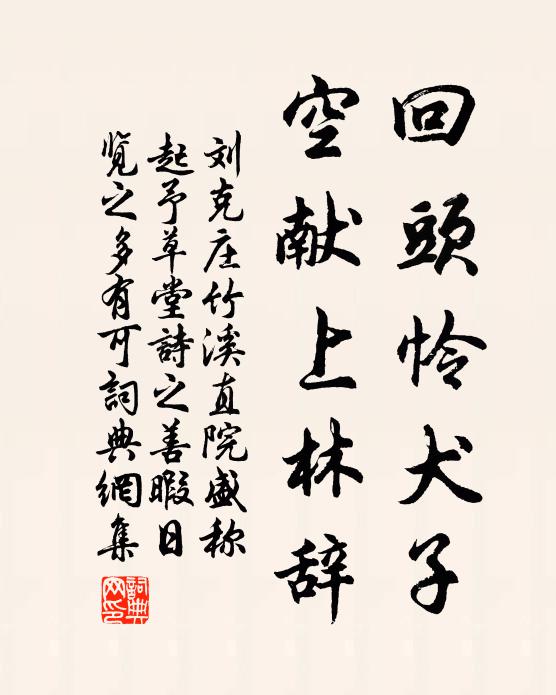 回頭怜犬子
空献上林辞
刘克庄竹溪直院盛称
起予草堂詩之善暇日
览之多有可詞典網集
詞典网印